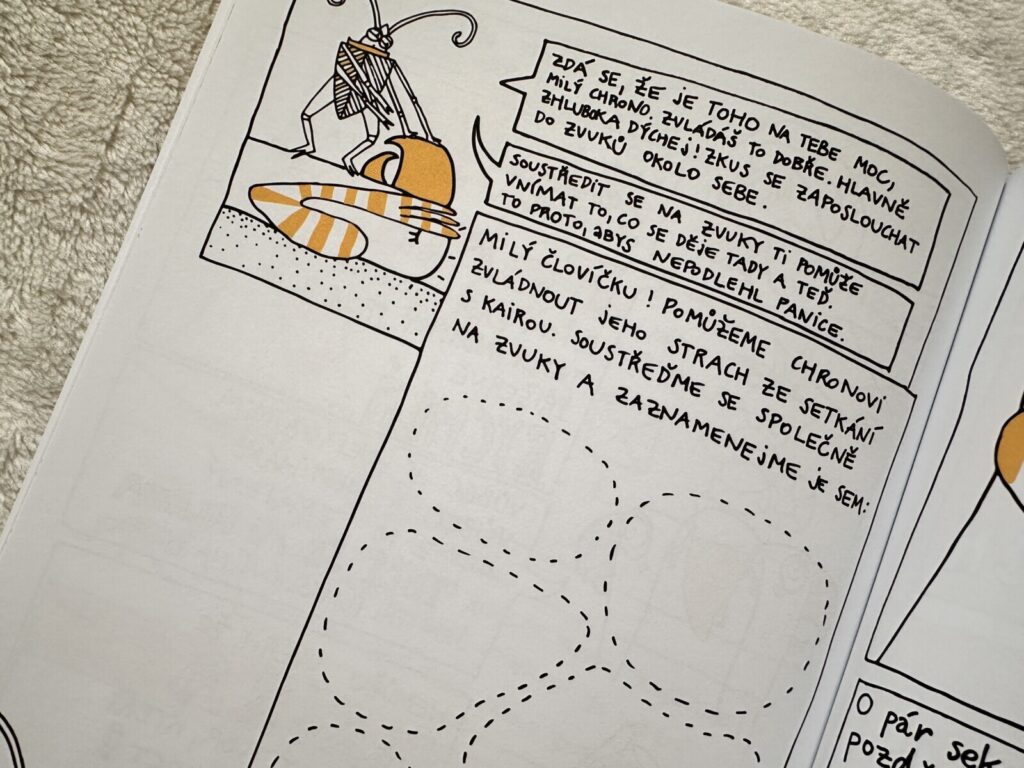 ZDÁ SE, ŽE JE TOHO NA TEBE MOC,
MILÝ CHRONO. ZVLÁDÁŠ TO DOBŘE. HLAVNĚ
ZHLUBOKA DÝCHEJ! ZKUS SE ZAPOSLOUCHAT
DO ZVUKŮ OKOLO SEBE.
SOUSTŘEDIT SE NA ZVUKY TI POMŮŽE
VNÍMAT TO, CO SE DĚJE TADY A TEĎ.
TO PROTO, ABYS NEPODLEHL PANICE.
MILÝ ČLOVÍČKU! POMŮŽEME CHRONOVI
ZVLÁDNOUT JEHO STRACH ZE SETKÁNÍ
S KAIROU. SOUSTŘEĎME SE SPOLEČNĚ
NA ZVUKY A ZAZNAMENEJME JE SEM:
O pár sek